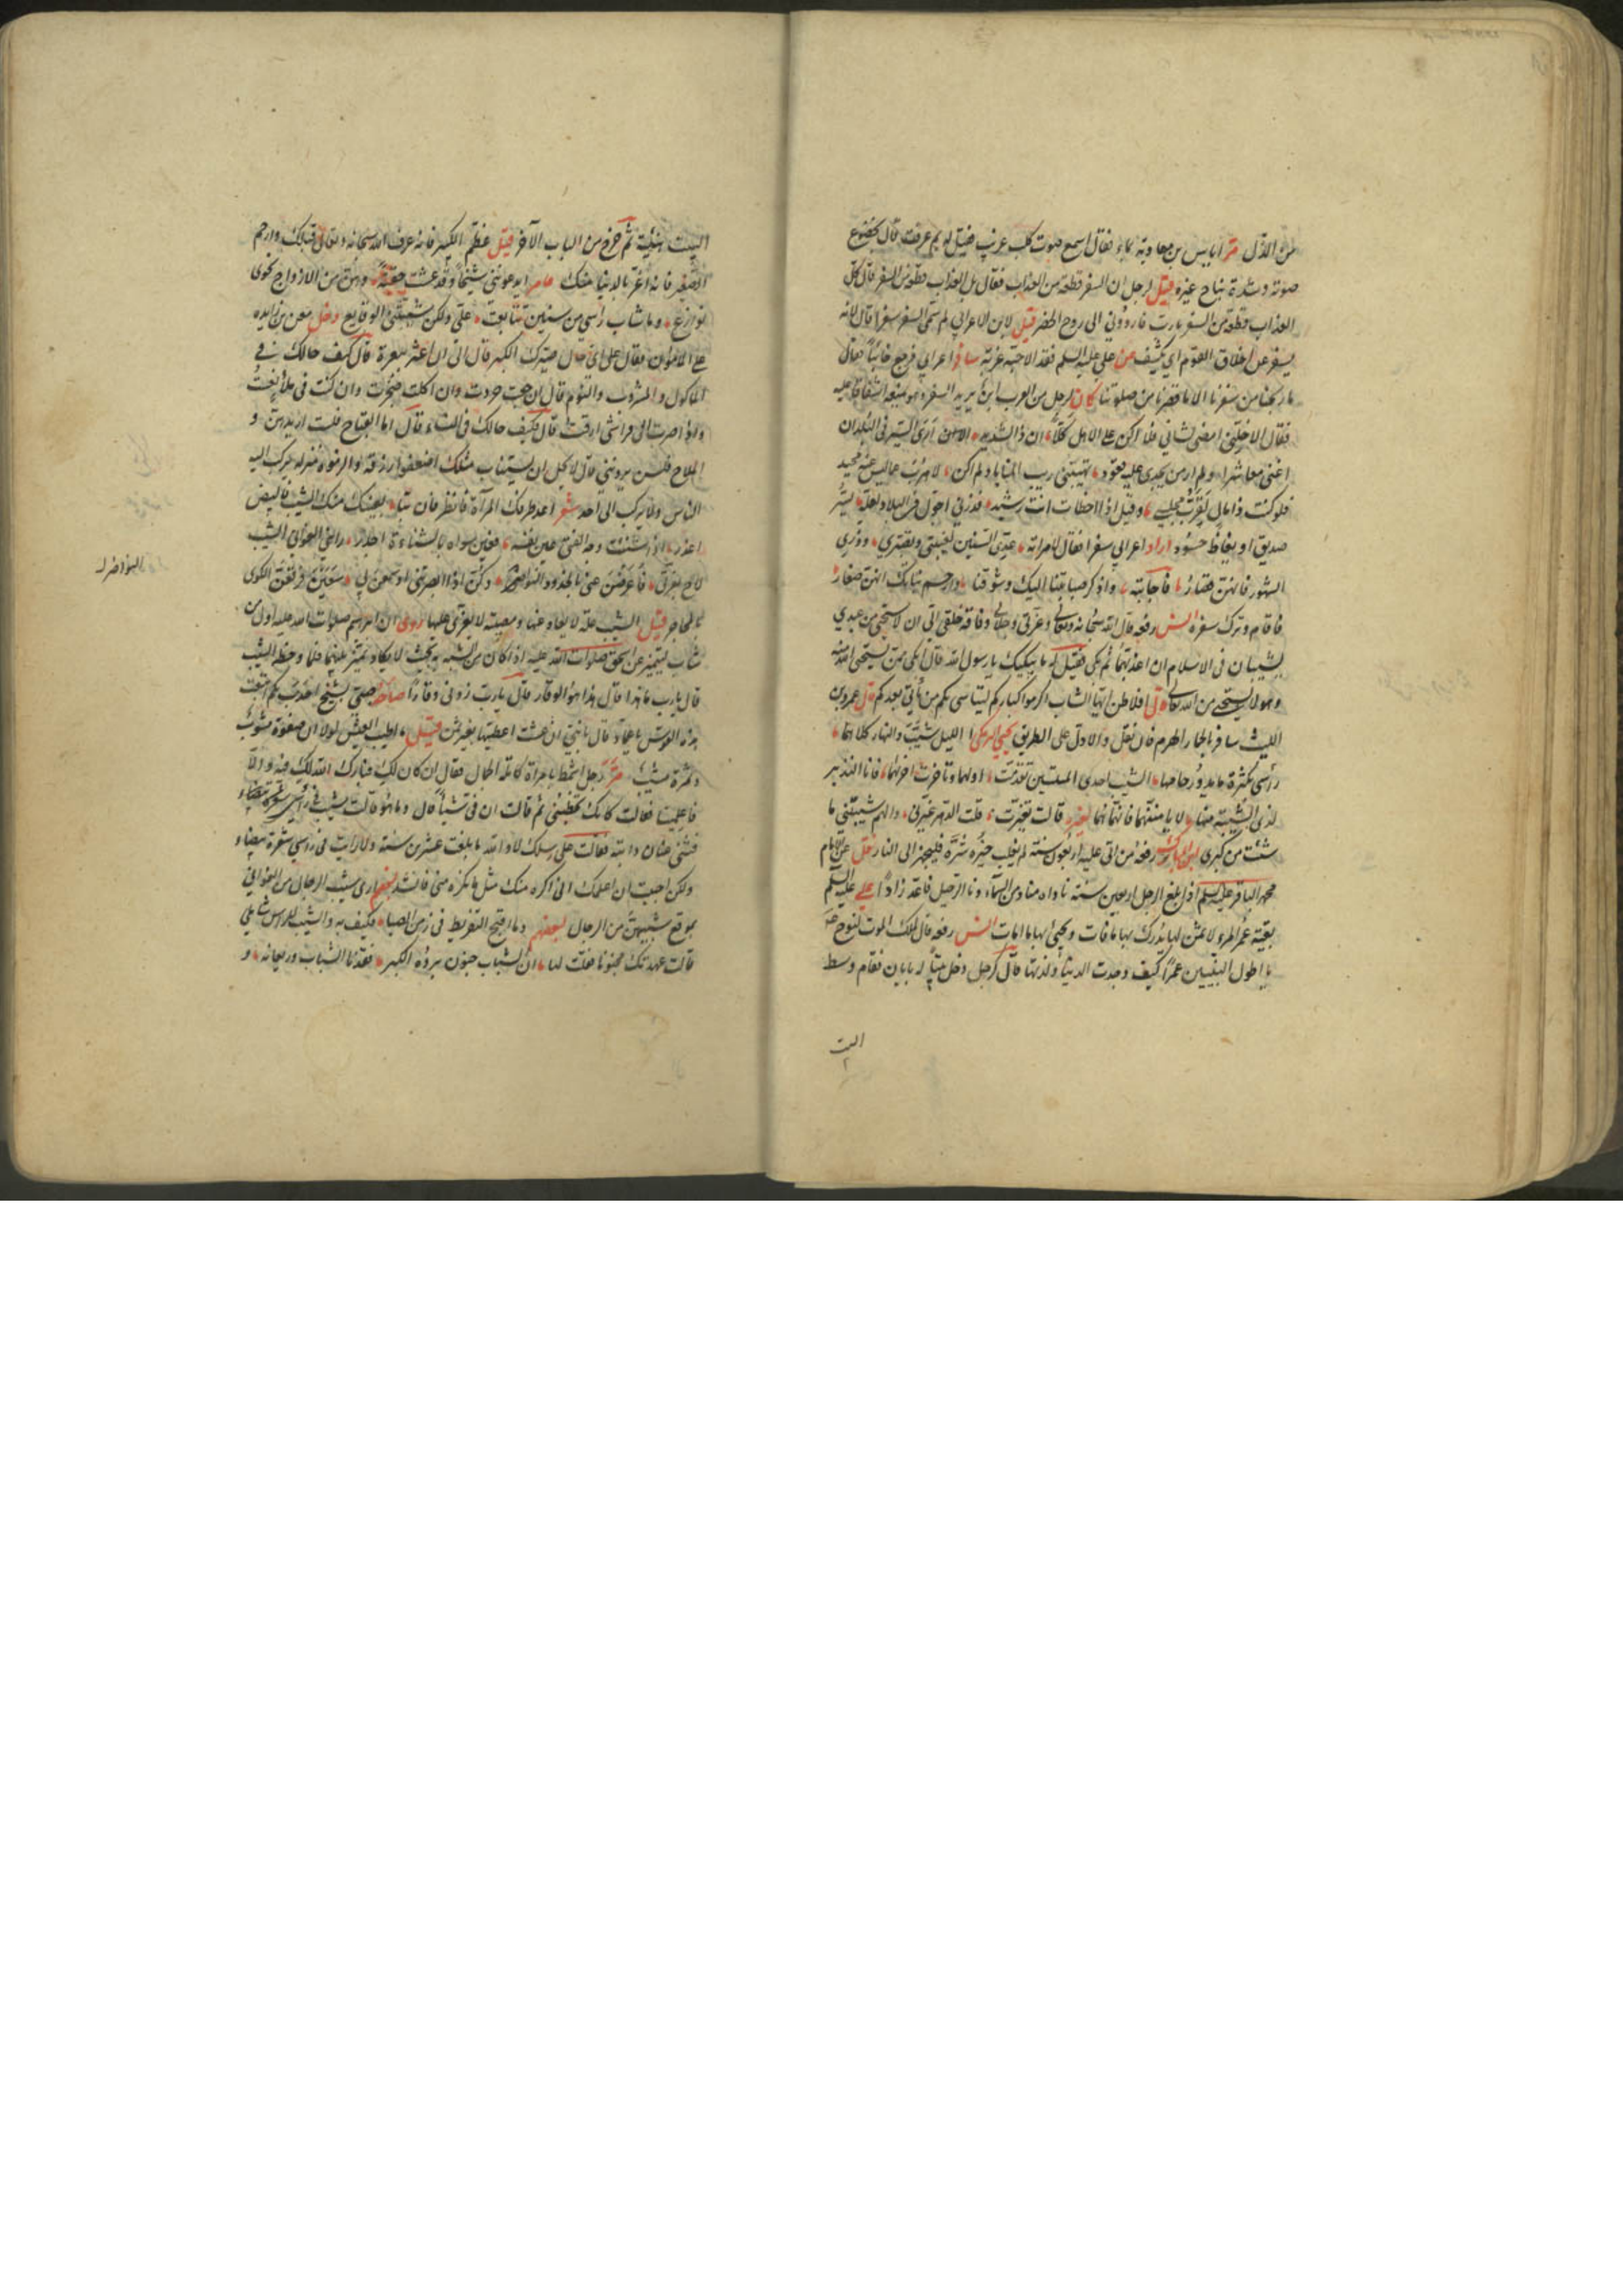 من الذل مر اياس بن معاوية بماء فقال اسمع صوت كلب غريب فقيل له بم عرفت قال بخضوع
صوته وشدة نباح غيره قيل لرجل ان السفر قطعة من العذاب فقال بل العذاب قطعة من السفر قال كل
العذاب قطعة من السفر يا رب فارددني الى روح الحضر قيل لابن الاعرابي لم سمى السفر سفرا قال لانه
يسفر عن اخلاق القوم اي يكشف عن علي عليه السلم فقد الاحبة غربة سافر اعرابي فرجع خائبا فقال
ما ربحنا من سفرنا الا ما قصرنا من صلوتنا كان لرجل من العرب ابن يريد السفر وهو يمنعه اشفاقا عليه
فقال الا خلني امضى لشاني ولا اكن على الاهل كلا ان ذا لشديد ارى السير في البلدان
اغنى معاشرا ولم ار من يجدى عليه قعود تهيبني ريب المنايا ولم اكن لاهرب عما ليس عنه محيد
فلو كنت ذا مال لقرب مجلسي وقيل اذا اخطات انت رشيد فذرني اجول في البلاد لعله يسر
صديق او يغاظ حسود اراد اعرابي سفرا فقال لامراته عدي السنين لغيبتي وتصبري وذري
الشهور فانهن قصار فاجابته واذكر صبابتنا اليك وشوقنا وارحم بناتك انهن صغار
فاقام وترك سفره انس رفعه قال الله سبحانه وتعالى وعزتي وجلالي وفاقة خلقي الي ان لاستحي من عبدي
يشيبان في الاسلام ان اعذبهما ثم بكى فقيل له ما يبكيك يا رسول الله قال ابكي ممن يستحي الله منه
وهو لا يستحي من الله تعالى قال افلاطن ايها الشاب اكرموا كباركم ليتاسى بكم من ياتي بعدكم قال عمرو بن
الليث
راسى بكثرة ما يدور رحاهما الشيب احدى الميتتين تقدمت اولهما وتاخرت اخراهما فانا النذير
لذى الشيبة منهما لا يامننهما فانهما هما لغيره قالت تغيرت قلت الدهر غيرني والهم شيبني ما
شئت من كبرى رفعه من اتى عليه اربعون سنة لم يغلب خيره شره فليجهز الى النار عن الامام
محمد الباقر عليه السلم اذا بلغ الرجل اربعين سنة ناداه مناد من السماء دنا الرحيل فاعد زادا علي عليه السلم
بقية عمر المرء لا ثمن لها يدرك بها ما فات ويحيى بها ما امات انس رفعه قال ملك الموت لنوح
يا اطول النبيين عمرا كيف وجدت الدنيا ولذتها قال كرجل دخل بيتا له بابان فقام وسط
البيت
البيت هنيئة ثم خرج من الباب الآخر قيل عظم الكبير فانه عرف الله سبحانه وتعالى قبلك وارحم
الصغير فانه اغر بالدنيا منك عامر ايدعونني شيخا وقد عشت حقبة وهن من الازواج نحوى
نوازع وما شاب راسي من سنين تتابعت علي ولكن شيبتني الوقايع دخل معن بن زايده
على الامون فقال على اي حال صيرك الكبر فقال اني اعثر ببعرة قال كيف حالك في
الماكول والمشروب والنوم قال ان جعت حردت وان اكلت ضجرت وان كنت في ملأ نعست
واذا صرت الى فراشي ارقت قال فكيف حالك في النساء قال اما القباح فلست اريدهن و
الملاح فلسن يردنني قال لا يحل ان يستناب مثلك اضعفوا رزقه والزموه منزله يركب اليه
الناس ولا يركب الى احد شعر
لاح بمفرقي فاعرضن عني بالخدود النواضر وكن اذا ابصرنني او سمعن بي سعين فرقعن الكوى
بالمحاجر قيل الشيب علة لا يعاد عنها ومصيبة لا يعزى عليها روى ان ابراهيم صلوات الله عليه اول من
شاب ليتميز عن اسحق صلوات الله عليه اذ كان من الشبه به بحيث لا يكاد يتميز بينهما فلما وخطه الشيب
قال يا رب ما هذا قال هذا هو الوقار قال يا رب زدني وقارا صاح صبي بشيخ احدب بكم ابتعت
هذه القوس يا عماه قال يا بني ان عشت اعطيتها بغير ثمن قيل ما اطيب العيش لولا ان صفوه مشوب
وثمرة مشب مر رجل اشمط بامراة كاملة الجمال فقال ان كان لك زوج فبارك الله لك فيه والا
فاعلمينا فقالت كانك تخطبني ثم قالت ان في شيئا قال وما هو قالت شيب في راسي
فثنى عنان دابته فقالت على رسلك لا والله ما بلغت عشرين سنة ولا رايت في راسي شعرة بيضاء
ولكن احببت ان اعلمك انى اكره منك مثل ما تكره مني فانشد ارى شيب الرجال من الغواني
بموقع شيبهن من الرجال لبعضهم وما اقبح التفريط في زمن الصبا فكيف به والشيب للراس شامل
قالت عهدتك مجنونا فقلت لها ان الشباب جنون برؤه الكبر فقدنا الشباب وريعانه و
النواضر